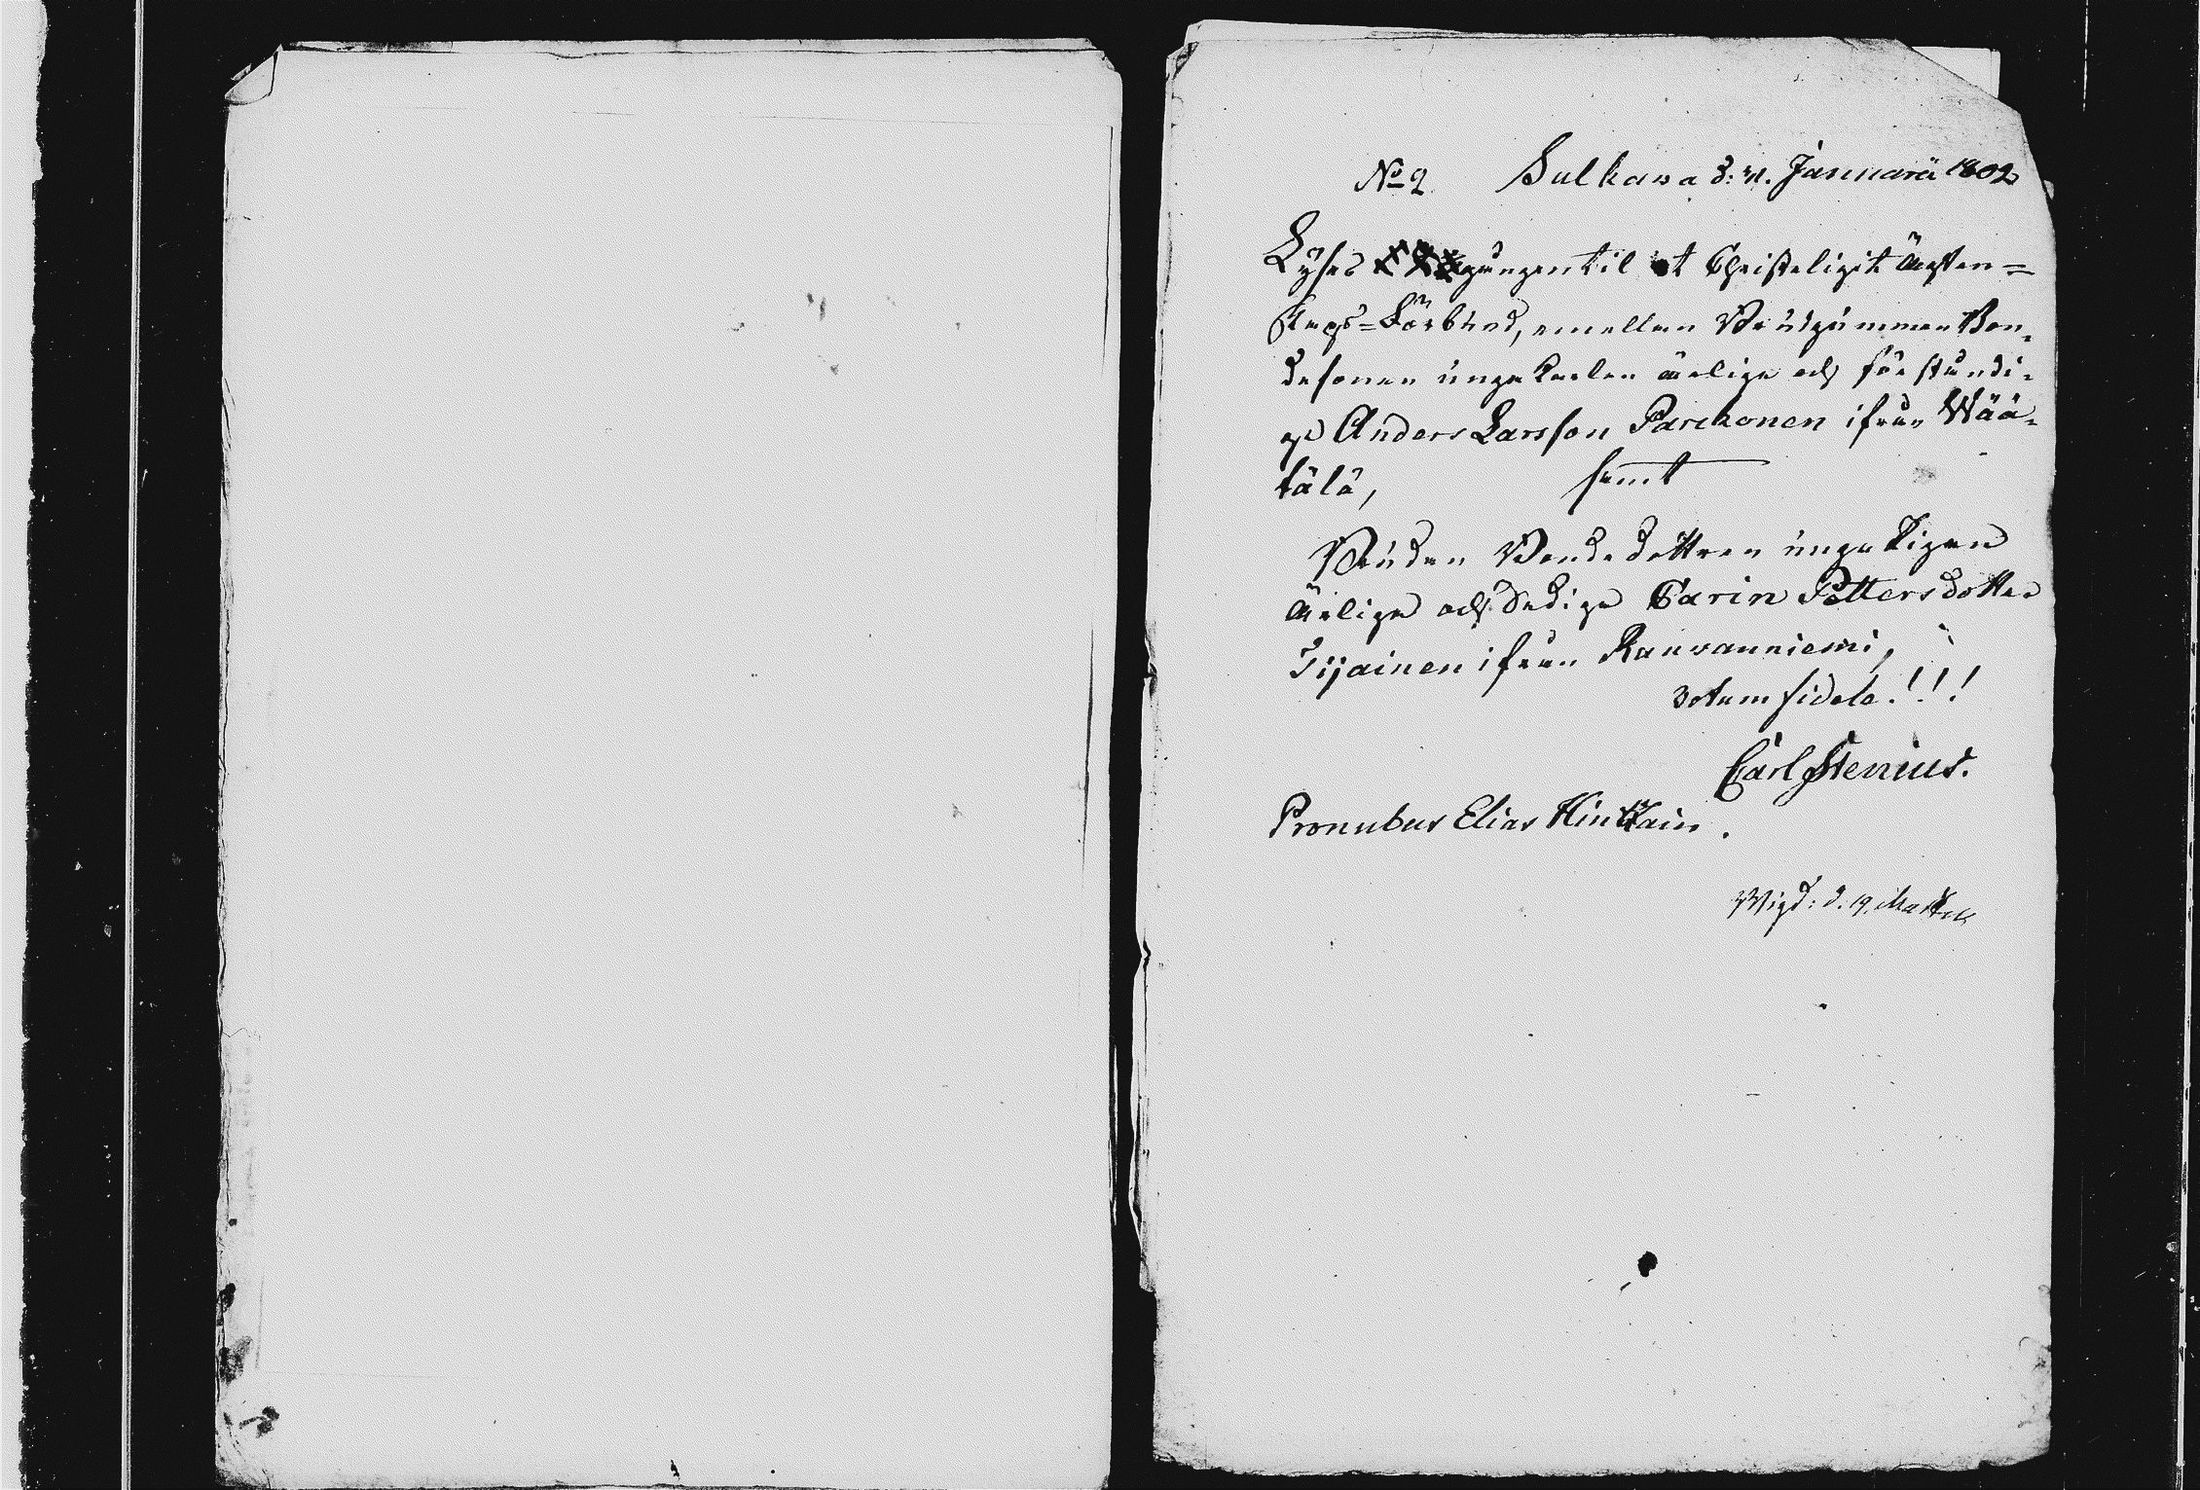 No 2. Sulkawa d: 11. Januarii 1802
Lyses gången til et Christeligit Ächten=
skaps=Förbund, emellan Brudgummen Bon-
desonen unga Karlen ärlige och förståndi-
ge Anders Larsson Parckonen ifrån Wää-
tälä, samt
Bruden Bondedottren unga Pigan
Ärliga och Sediga Carin Pettersdotter
Iijainen ifrån Rauvanniemi,
votum fidele!!!
Carl Stenius.
Pronubus Elias
Wigd: d. 19.